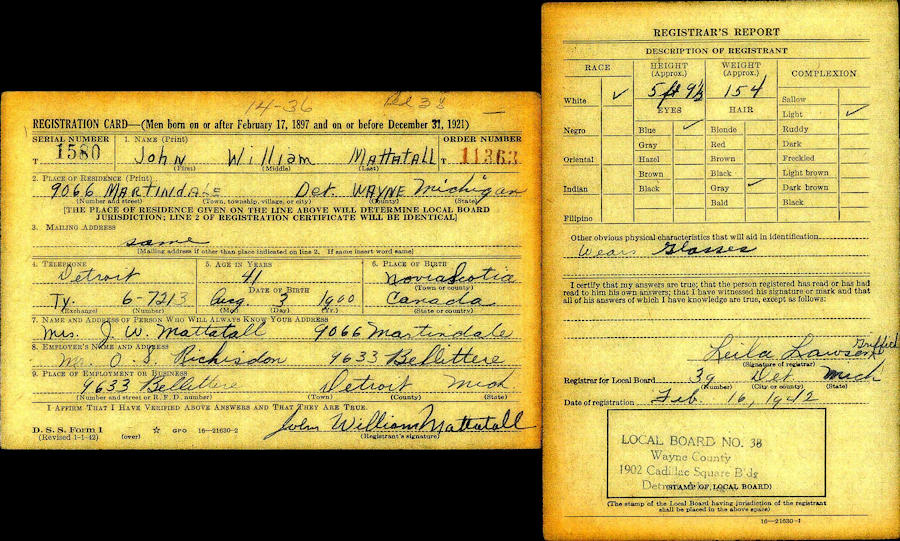 14-36
REGISTRATION CARD—(Men born on or after February 17, 1897 and on or before December 31, 1921)
SERIAL NUMBER 1. NAME (Print) ORDER NUMBER
T 1580 John William Mattatall T 11363
(First) (Middle) (Last)
2. PLACE OF RESIDENCE (Print)
9066 MARTINDALE Det. WAYNE Michigan
(Number and street) (Town, township, village, or city) (County) (State)
[THE PLACE OF RESIDENCE GIVEN ON THE LINE ABOVE WILL DETERMINE LOCAL BOARD
JURISDICTION; LINE 2 OF REGISTRATION CERTIFICATE WILL BE IDENTICAL]
3. MAILING ADDRESS
same
[Mailing address if other than place indicated on line 2. If same insert word same]
4. TELEPHONE 5. AGE IN YEARS 6. PLACE OF BIRTH
Detroit 41 Novia Scotia
DATE OF BIRTH (Town or county)
Ty. 6-7213 Aug. 3 1900 Canada
(Exchange) (Number) (Mo.) (Day.) (Yr.) (State or country)
7. NAME AND ADDRESS OF PERSON WHO WILL ALWAYS KNOW YOUR ADDRESS
Mrs. J. W. Mattatall 9066 Martindale
8. EMPLOYER'S NAME AND ADDRESS
O. S. 9633
9. PLACE OF EMPLOYMENT OR BUSINESS
9633 Detroit Mich
(Number and street or R. F. D. number) (Town) (County) (State)
I AFFIRM THAT I HAVE VERIFIED ABOVE ANSWERS AND THAT THEY ARE TRUE.
D. S. S. Form 1 John William Mattatall
(Revised 1-1-42) (over) ☆ GPO 16—21630-2 (Registrant's signature)
REGISTRAR'S REPORT
DESCRIPTION OF REGISTRANT
RACE HEIGHT (Approx.) WEIGHT (Approx.) COMPLEXION
White ✓ 5 ft 9½ 154 Sallow
EYES HAIR Light ✓
Negro Blue ✓ Blonde Ruddy
Gray Red Dark
Oriental Hazel Brown Freckled
Brown Black Light brown
Indian Black Gray ✓ Dark brown
Bald Black
Filipino
Other obvious physical characteristics that will aid in identification
Wears Glasses
I certify that my answers are true; that the person registered has read or has had
read to him his own answers; that I have witnessed his signature or mark and that
all of his answers of which I have knowledge are true, except as follows:
Leila Lawson
(Signature of registrar)
Registrar for Local Board 39 Det Mich
(Number) (City or county) (State)
Date of registration Feb. 16, 1942
LOCAL BOARD NO. 38
Wayne County
1902 Cadillac Square Bldg
(STAMP OF LOCAL BOARD)
(The stamp of the Local Board having jurisdiction of the registrant
shall be placed in the above space)
16—21630-1